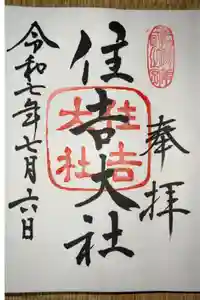 奉拝
住吉大社
住吉
大社
令和七年七月六日